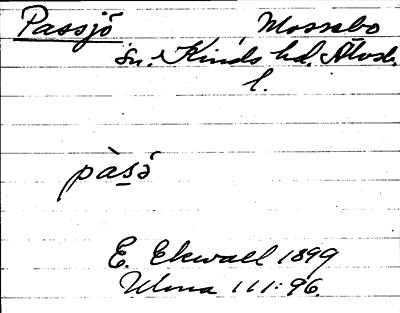 Passjö Mossebo
sn. Kinds hd. Älvsb.
l.
pàsö
E. Ekwall 1899
Ulma 111:96.